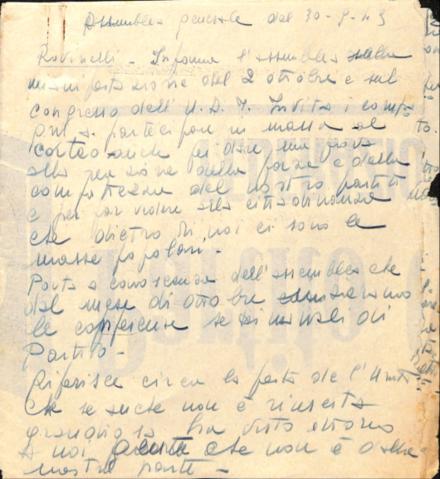 Assemblea generale del 30-9-45
Rovinelli - Informa l'assemblea sulla
manifestazione del 2 ottobre e sul
congresso dell'U.D.I. Invita i compa
gni a partecipare in massa al
corteo anche per dare una prova
alla reazione della forza e della
compattezza del nostro partito
e per far vedere alla cittadinanza
che dietro di noi ci sono le
masse popolari.
Porta a conoscenza dell'assemblea che
dal mese di ottobre
le conferenze settimanali di
Partito -
Riferisce circa la festa de l'Unità
che se anche non è riuscita
grandiosa ha visto attorno
a noi gente che non è della
nostra parte -